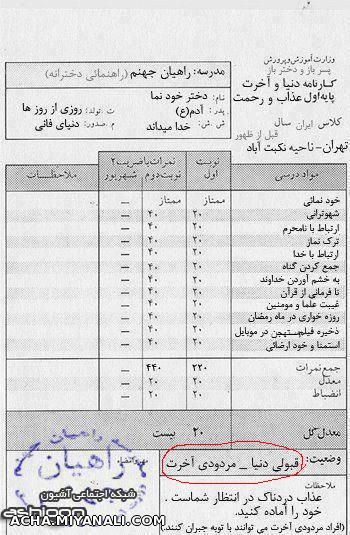 وزارت آموزش و پرورش
پسر باز و دختر باز
کارنامه دنیا و آخرت
پایه اول عذاب و رحمت
کلاس ایران سال
قبل از ظهور
تهران - ناحیه نکبت آباد
مدرسه: راهیان جهنم (راهنمائی دخترانه)
نام: دختر خود نما
پدر: آدم(ع)
ت. تولد: روزی از روز ها
ش. ش: خدا میداند
م. صدور: دنیای فانی
مواد درسی نوبت اول نمرات باضریب۲ نوبت دوم شهریور ملاحظات
خود نمائی ممتاز ممتاز —
شهوترانی ۲۰ ۴۰ —
ارتباط با نامحرم ۲۰ ۴۰ —
ترک نماز ۲۰ ۴۰ —
ارتباط با خدا ۲۰ ۴۰ —
جمع کردن گناه ۲۰ ۴۰ —
به خشم آوردن خداوند ۲۰ ۴۰ —
نا فرمانی از قرآن ۲۰ ۴۰ —
غیبت علما و مومنین ۲۰ ۴۰ —
روزه خواری در ماه رمضان ۲۰ ۴۰ —
ذخیره فیلم مستهجن در موبایل ۲۰ ۴۰ —
استمنا و خود ارضائی ۲۰ ۴۰ —
جمع نمرات ۲۲۰ ۴۴۰
معدل ۲۰ ۲۰
انضباط ۲۰ ۲۰
معدل کل ۲۰ بیست
وضعیت: قبولی دنیا _ مردودی آخرت
ملاحظات
عذاب دردناک در انتظار شماست .
خود را آماده کنید.
(افراد مردودی آخرت می توانند با توبه جبران کنند.)
راهیان
شبکه اجتماعی آشیون
ACHA.MIYANALI.COM